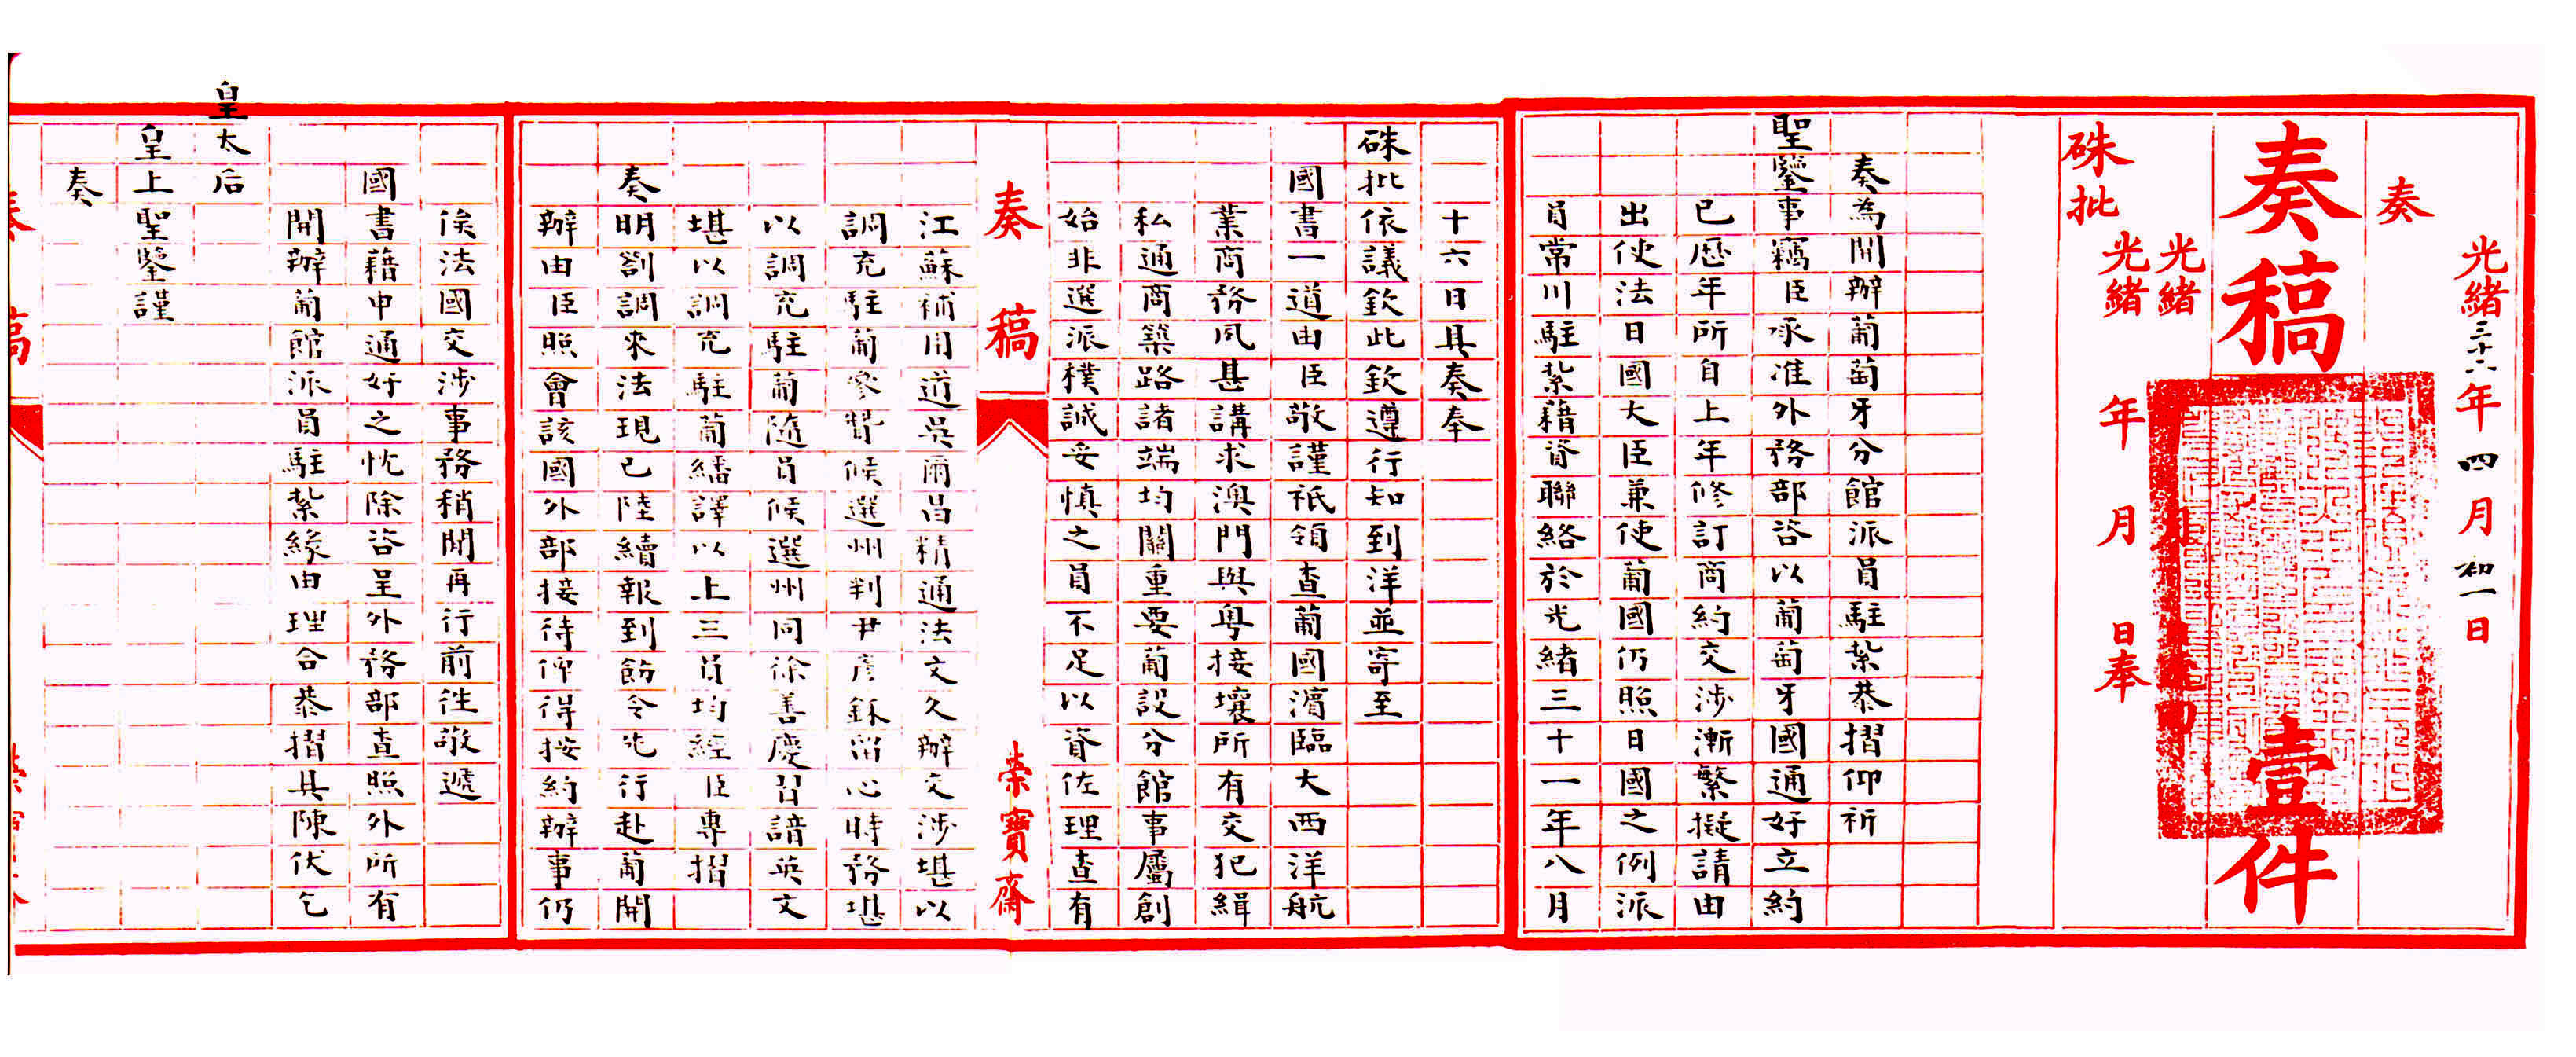 光緒年四月初一日
奏
奏稿壹件
光緒
光緒年月日奉
硃批
奏為開辦葡萄牙分館派員駐紮恭摺仰祈
聖鑒事竊臣承准外務部咨以葡萄牙國通好立約
已歷年所自上年修訂商約交涉漸繁擬請由
出使法日國大臣兼使葡國仍照日國之例派
員常川駐紮藉資聯絡於光緒三十一年八月
十六日具奏奉
硃批依議欽此欽遵行知到洋並寄至
國書一道由臣敬謹祇領查葡國濱臨大西洋航
業商務夙甚講求澳門與粵接壤所有交犯緝
私通商築路諸端均關重要葡設分館事屬創
始非選派樸誠妥慎之員不足以資佐理查有
奏稿 榮寶齋
江蘇補用道吳爾昌精通法文久辦交涉堪以
調充駐葡參贊候選州判尹彥鉌留心時務堪
以調充駐葡隨員候選州同徐善慶習諳英文
堪以調充駐葡繙譯以上三員均經臣專摺
奏明劄調來法現已陸續報到飭令先行赴葡開
辦由臣照會該國外部接待俾得按約辦事仍
俟法國交涉事務稍閒再行前往敬遞
國書藉申通好之忱除咨呈外務部查照外所有
開辦葡館派員駐紮緣由理合恭摺具陳伏乞
皇太后
皇上聖鑒謹
奏